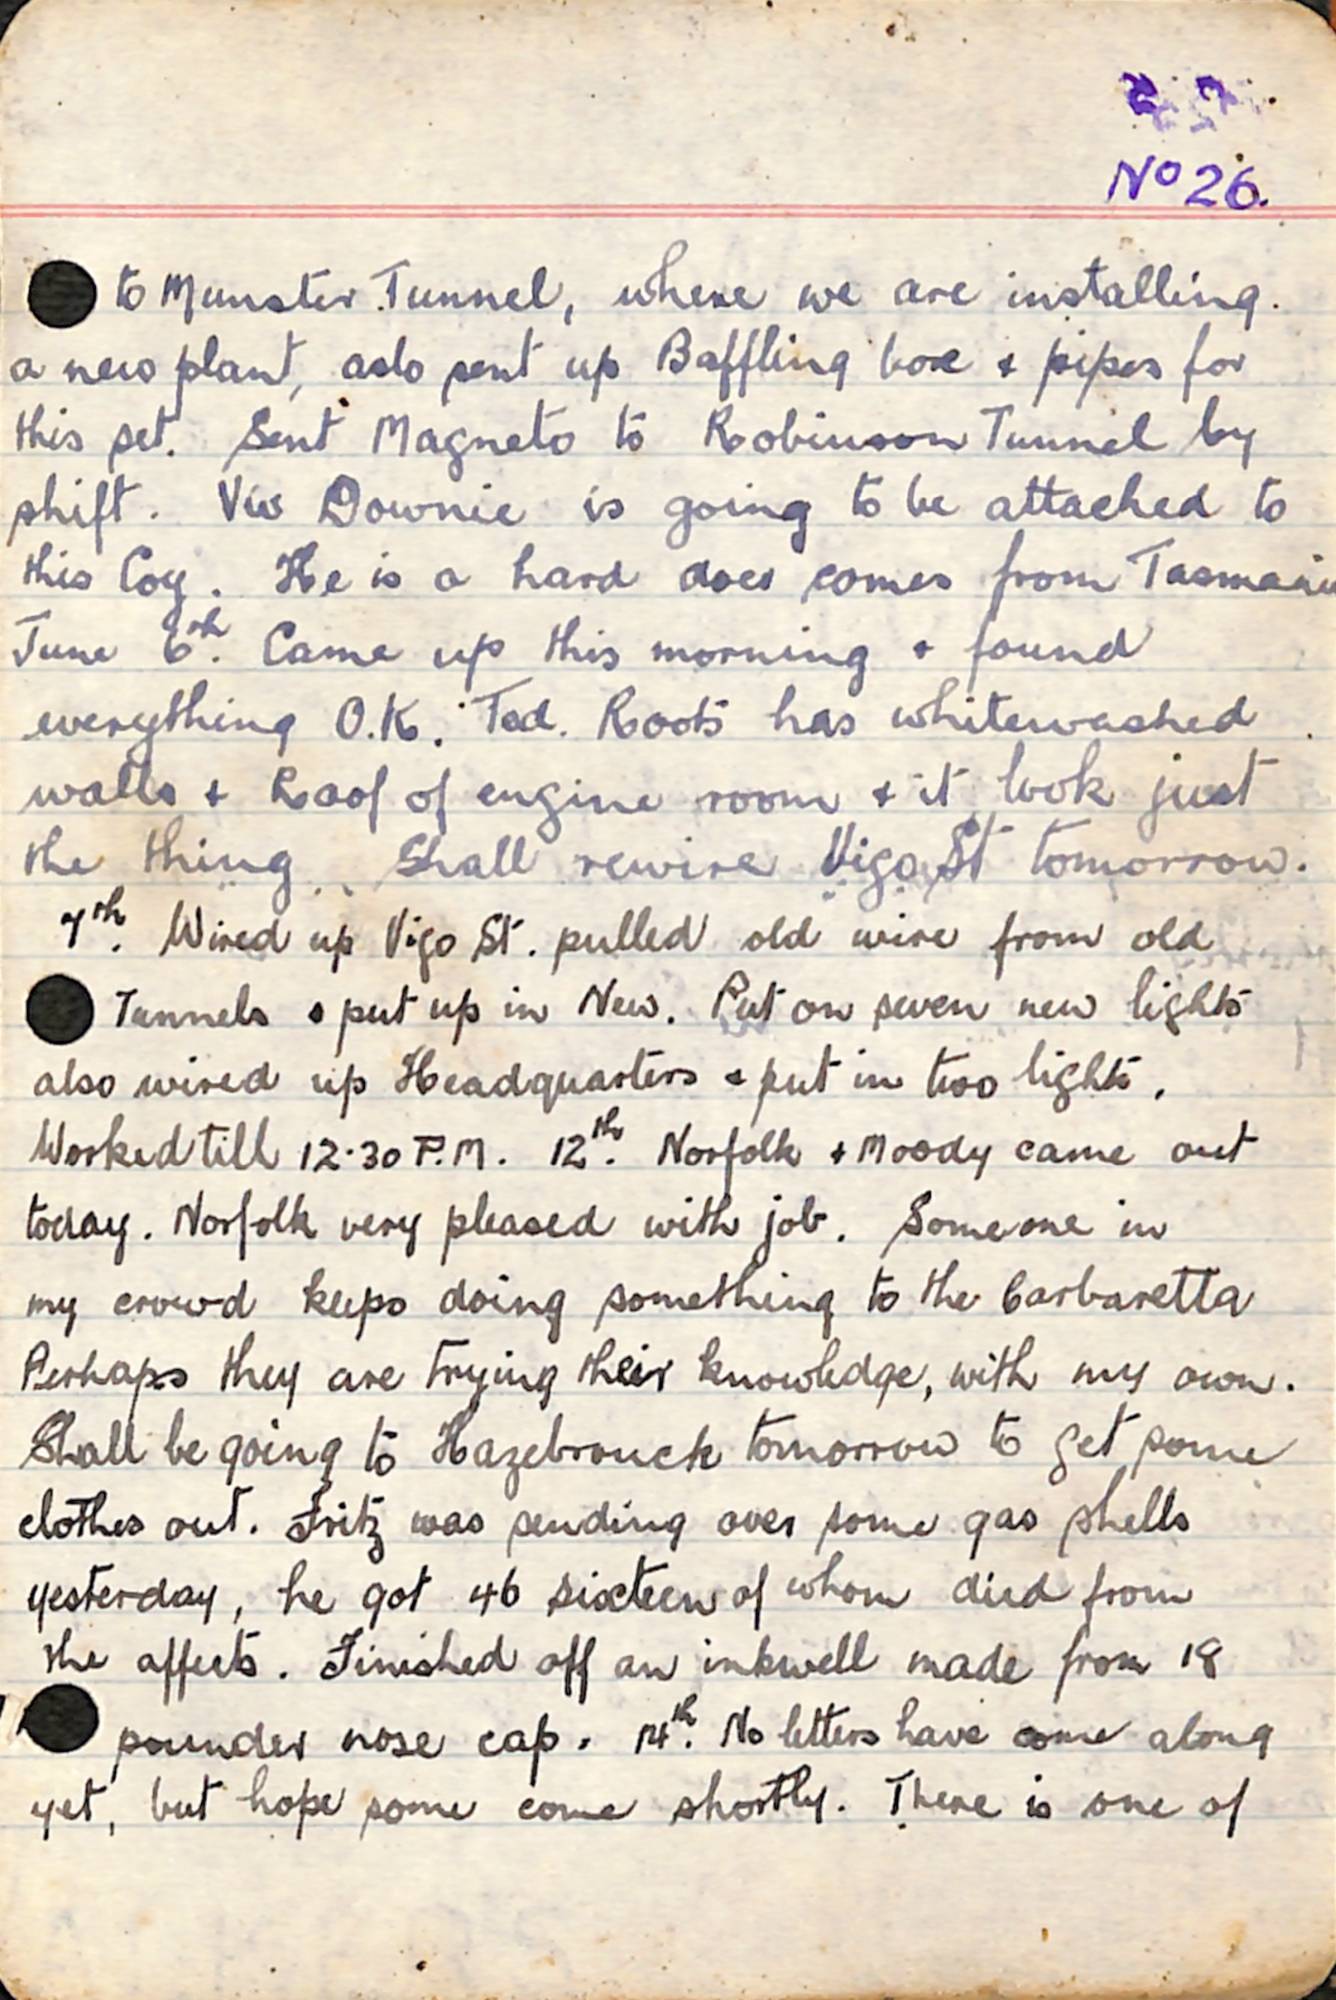 No 26.
to Munster Tunnel, where we are installing.
a new plant, aslo sent up Baffling box + pipes for
this set. Sent Magneto to Robinson Tunnel by
shift. Viv Downie is going to be attached to
this Coy. He is a hard doer comes from Tasmania
June 6th. Came up this morning + found
everything O.K. Ted. Roots has whitewashed
walls + Roof of engine room + it look just
the thing. Shall rewire Vigo St tomorrow.
7th. Wired up Vigo St. pulled old wire from old
Tunnels + put up in New. Put on seven new lights
also wired up Headquarters + put in two lights.
Worked till 12.30 P.M. 12th. Norfolk + Moody came out
today. Norfolk very pleased with job. Someone in
my crowd keeps doing something to the Carbaretta
Perhaps they are trying their knowledge, with my own.
Shall be going to Hazebrouck tomorrow to get some
clothes out. Fritz was sending over some gas shells
yesterday, he got 46 sixteen of whom died from
the affects. Finished off an inkwell made from 18
pounder nose cap. 14th. No letters have come along
yet, but hope some come shortly. There is one of